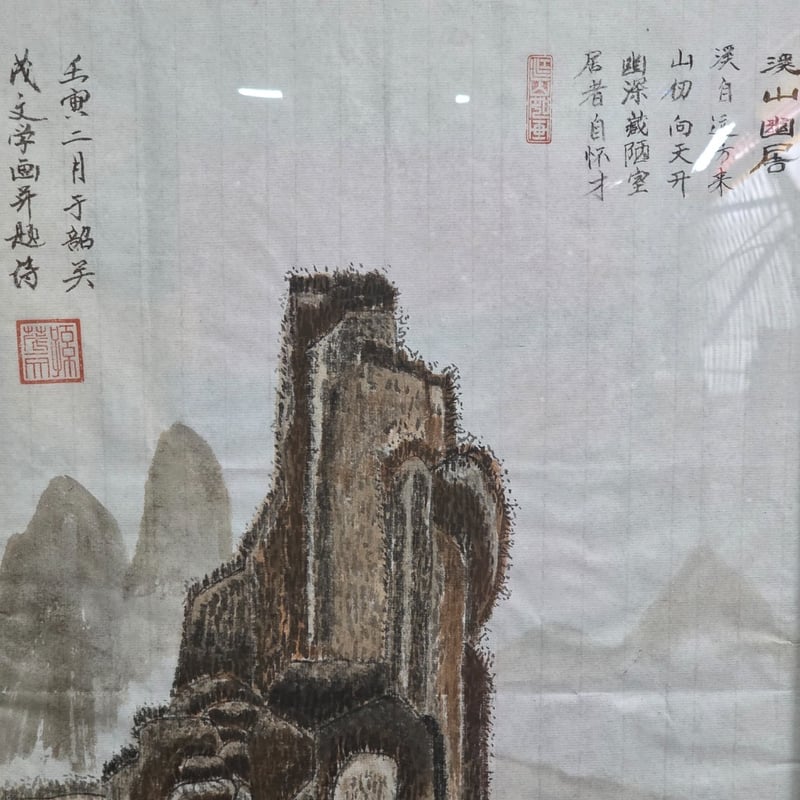 溪山幽居
溪自远方来
山仞向天开
幽深藏陋室
居者自怀才
壬寅二月于韶关
茂文学画并题诗